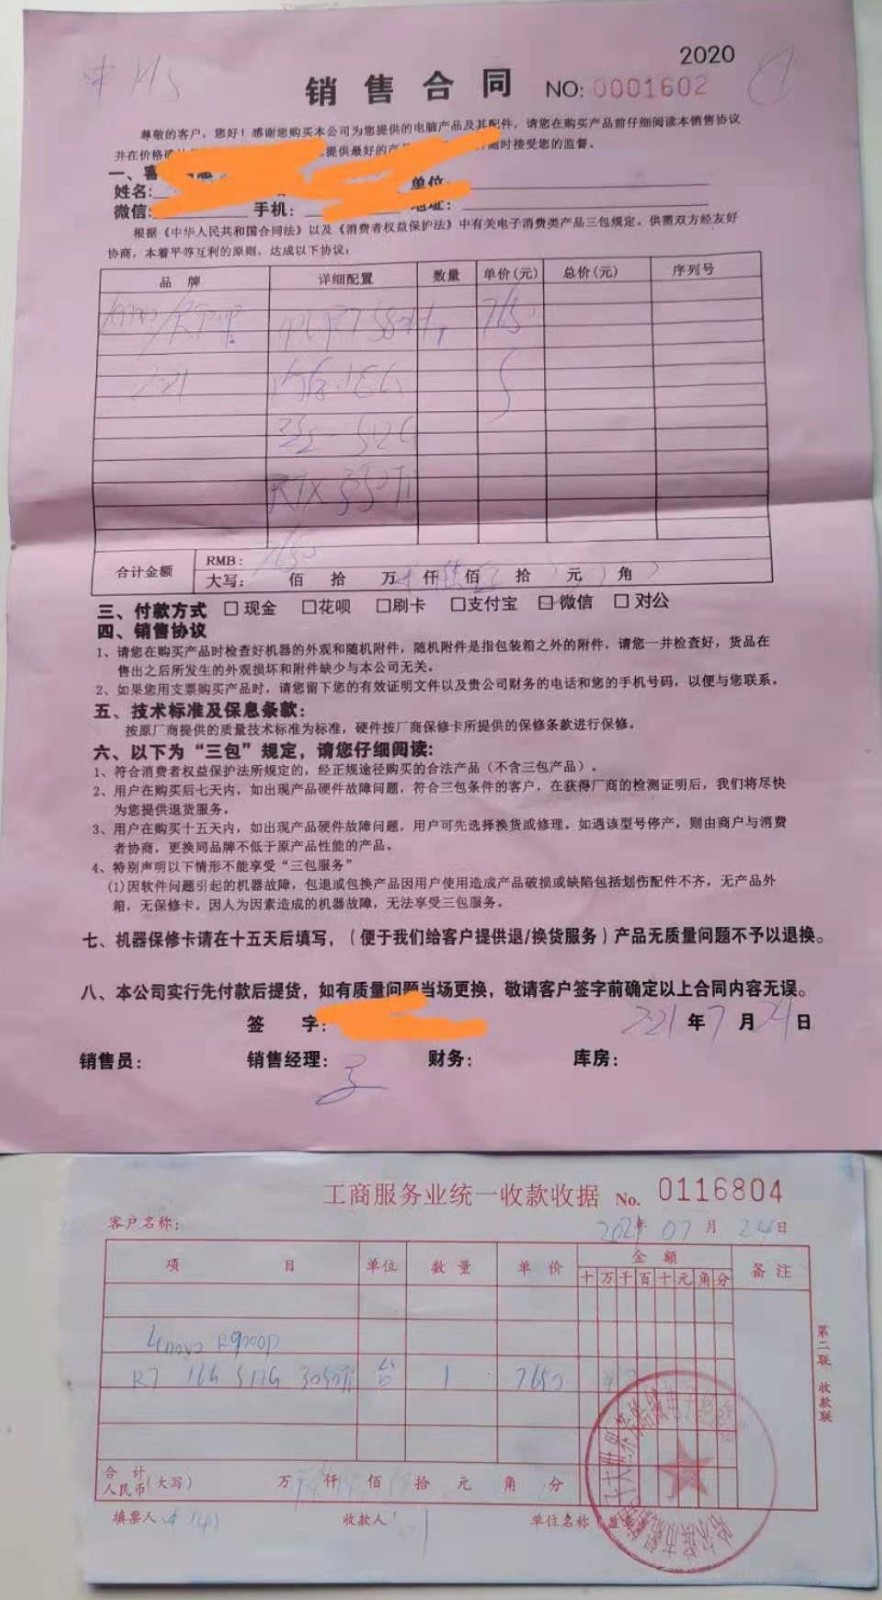 2020
销售合同 NO: 0001602
尊敬的客户，您好！感谢您购买本公司为您提供的电脑产品及其配件，请您在购买产品前仔细阅读本销售协议
并在价格 提供最好的 随时接受您的监督。
一、客
姓名: 单位:
微信: 手机: 地址:
根据《中华人民共和国合同法》以及《消费者权益保护法》中有关电子消费类产品三包规定。供需双方经友好
协商，本着平等互利的原则，达成以下协议：
品牌 详细配置 数量 单价(元) 总价(元) 序列号
R7 58 1 765
16G
RTX 3050Ti
合计金额 RMB: 7650
大写: 佰 拾 万 仟 佰 拾 元 角
三、付款方式 □现金 □花呗 □刷卡 □支付宝 □微信 □对公
四、销售协议
1、请您在购买产品时检查好机器的外观和随机附件，随机附件是指包装箱之外的附件，请您一并检查好，货品在
售出之后所发生的外观损坏和附件缺少与本公司无关。
2、如果您用支票购买产品时，请您留下您的有效证明文件以及贵公司财务的电话和您的手机号码，以便与您联系。
五、技术标准及保息条款：
按原厂商提供的质量技术标准为标准，硬件按厂商保修卡所提供的保修条款进行保修。
六、以下为“三包”规定，请您仔细阅读：
1、符合消费者权益保护法所规定的，经正规途径购买的合法产品（不含三包产品）。
2、用户在购买后七天内，如出现产品硬件故障问题，符合三包条件的客户，在获得厂商的检测证明后，我们将尽快
为您提供退货服务。
3、用户在购买十五天内，如出现产品硬件故障问题，用户可先选择换货或修理。如遇该型号停产，则由商户与消费
者协商，更换同品牌不低于原产品性能的产品。
4、特别声明以下情形不能享受“三包服务”
(1)因软件问题引起的机器故障，包退或包换产品因用户使用造成产品破损或缺陷包括划伤配件不齐，无产品外
箱，无保修卡。因人为因素造成的机器故障，无法享受三包服务。
七、机器保修卡请在十五天后填写，（便于我们给客户提供退/换货服务）产品无质量问题不予以退换。
八、本公司实行先付款后提货，如有质量问题当场更换，敬请客户签字前确定以上合同内容无误。
签 字: 2021年7月24日
销售员: 销售经理: 财务: 库房:
工商服务业统一收款收据 No. 0116804
客户名称: 2021年07月24日
项 目 单位 数量 单价 金额 备注
十万千百十元角分
Lenovo R9000P
R7 16G 512G 3050Ti 台 1 7650
第二联 收款联
合计
人民币(大写) 万 仟 佰 拾 元 角 分
填票人 收款人: 单位名称